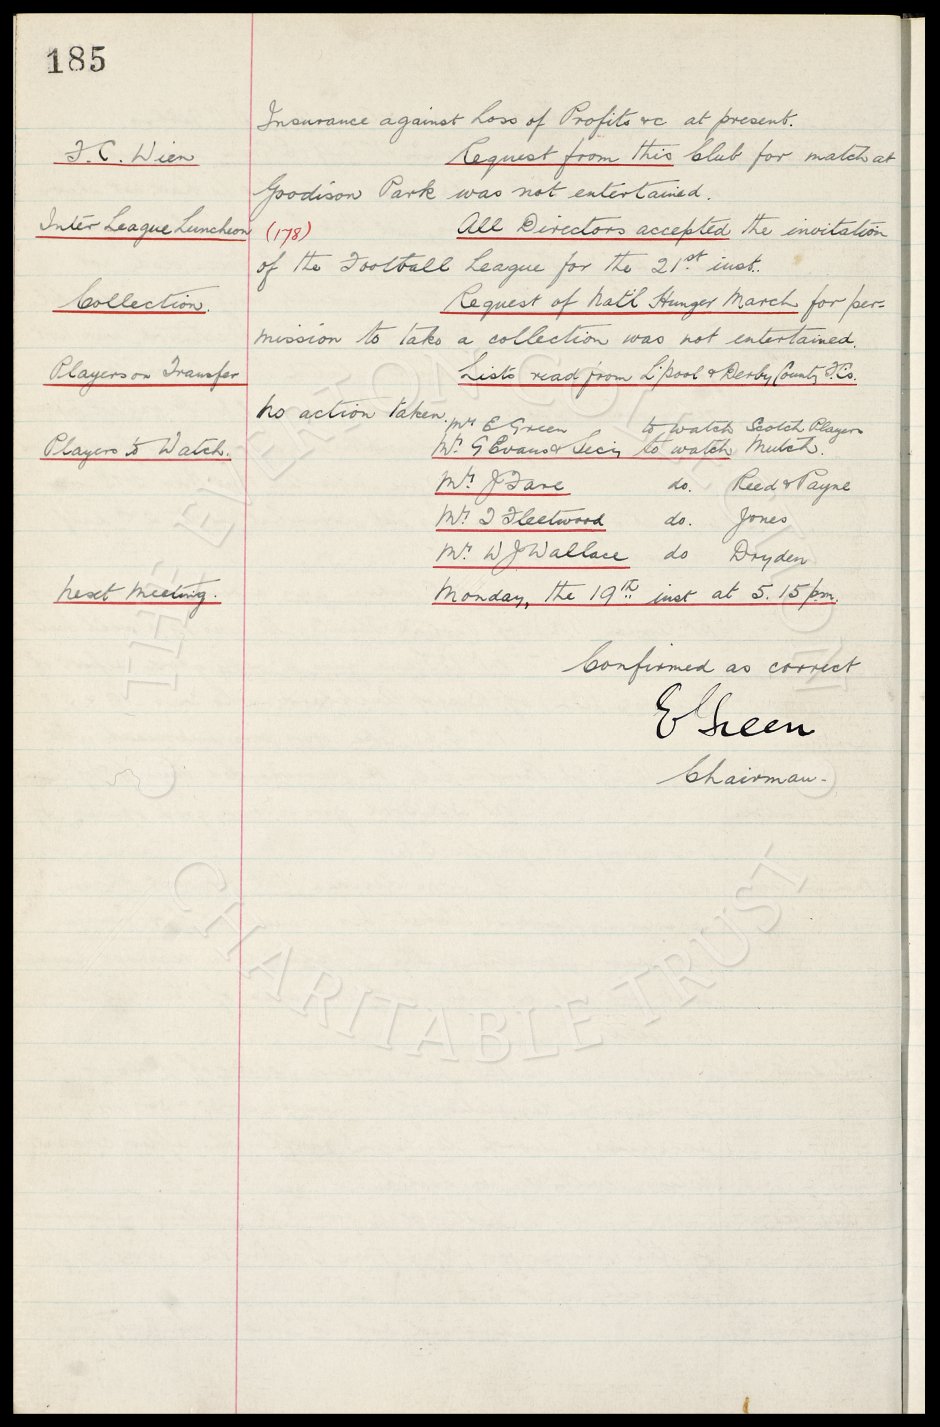 185
Insurance against Loss of Profits &c at present.
F. C. Wien Request from this Club for match at
Goodison Park was not entertained.
Inter League Luncheon (178) All Directors accepted the invitation
of the Football League for the 21st inst.
Collection. Request of Nat'l Hunger March for per-
mission to take a collection was not entertained.
Players on Transfer Lists read from L'pool & Derby County F.Cs.
No action taken.
Mr. E Green to watch Scotch Players
Players to Watch. Mr. G Evans & Secy to watch Mutch.
Mr. J Fare do. Reed & Payne
Mr. T Fleetwood do. Jones
Mr. W J Wallace do Dryden
Next Meeting. Monday, the 19th inst at 5.15 pm.
Confirmed as correct
E Green
Chairman.
THE EVERTON COLLECTION
CHARITABLE TRUST